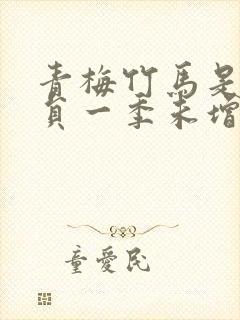 青梅竹馬是
貞一季未增
童愛民